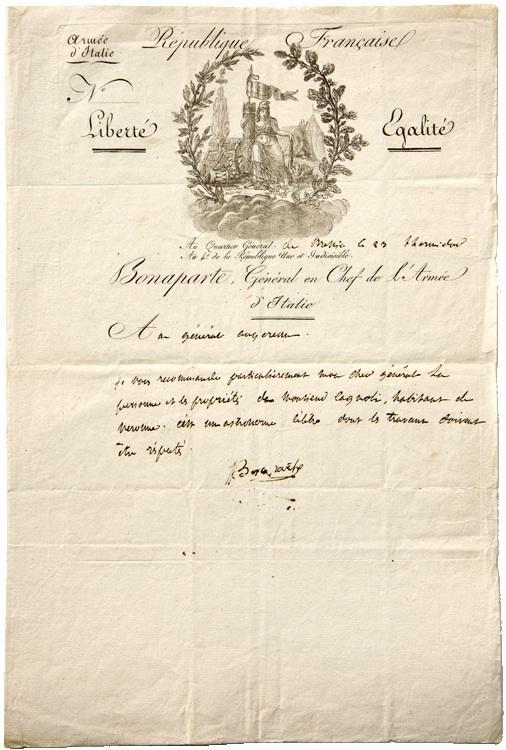 Armée
d'Italie
République Française
N
Liberté
Egalité
Au Quartier Général de Bressia le 23 thermidor
An 4e de la République Une et Indivisible.
Bonaparte, Général en Chef de l'Armée
d'Italie
Au général augereau.
je vous recommande particulièrement mon cher général la
personne et les propriétés de Monsieur Cagnoli, habitant de
veronne. c'est un astronome célèbre dont les travaux doivent
être respectés
Bonaparte